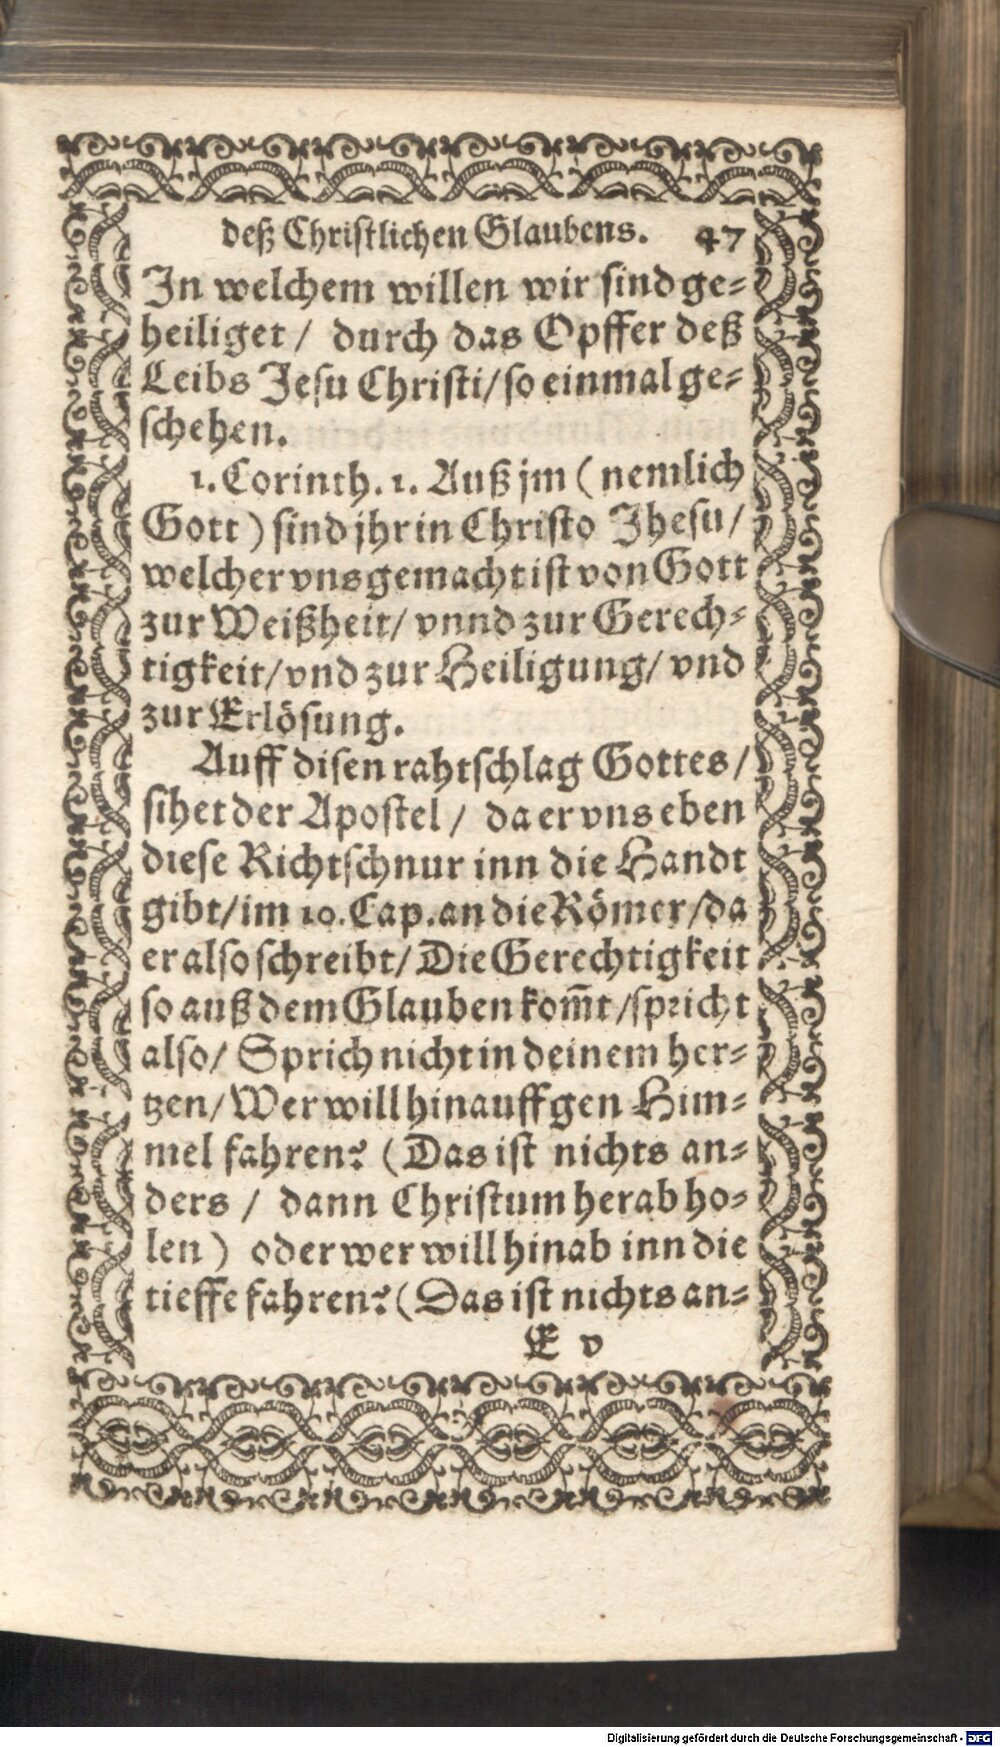 deß Christlichen Glaubens. 47
In welchem willen wir sind ge-
heiliget / durch das Opffer deß
Leibs Jesu Christi/ so einmal ge-
schehen.
1. Corinth. 1. Auß jm ( nemlich
Gott ) sind jhr in Christo Jhesu /
welcher vns gemacht ist von Gott
zur Weißheit/ vnnd zur Gerech-
tigkeit/ vnd zur Heiligung/ vnd
zur Erlösung.
Auff disen rahtschlag Gottes /
sihet der Apostel / da er vns eben
diese Richtschnur inn die Handt
gibt/ im 10. Cap. an die Römer/ da
er also schreibt/ Die Gerechtigkeit
so auß dem Glauben kom̃t / spricht
also/ Sprich nicht in deinem her-
tzen/ Wer will hinauff gen Him-
mel fahren? (Das ist nichts an-
ders / dann Christum herab ho-
len ) oder wer will hinab inn die
tieffe fahren? (Das ist nichts an-
E v
Digitalisierung gefördert durch die Deutsche Forschungsgemeinschaft - DFG